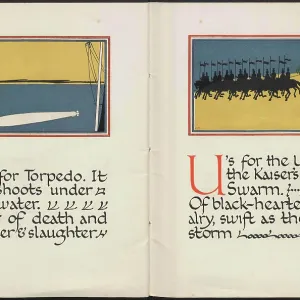 for Torpedo. It
shoots under
water.
of death and
er's slaughter.
U's for the U
the Kaiser's
Swarm.
Of black-hearte
alry, swift as the
storm